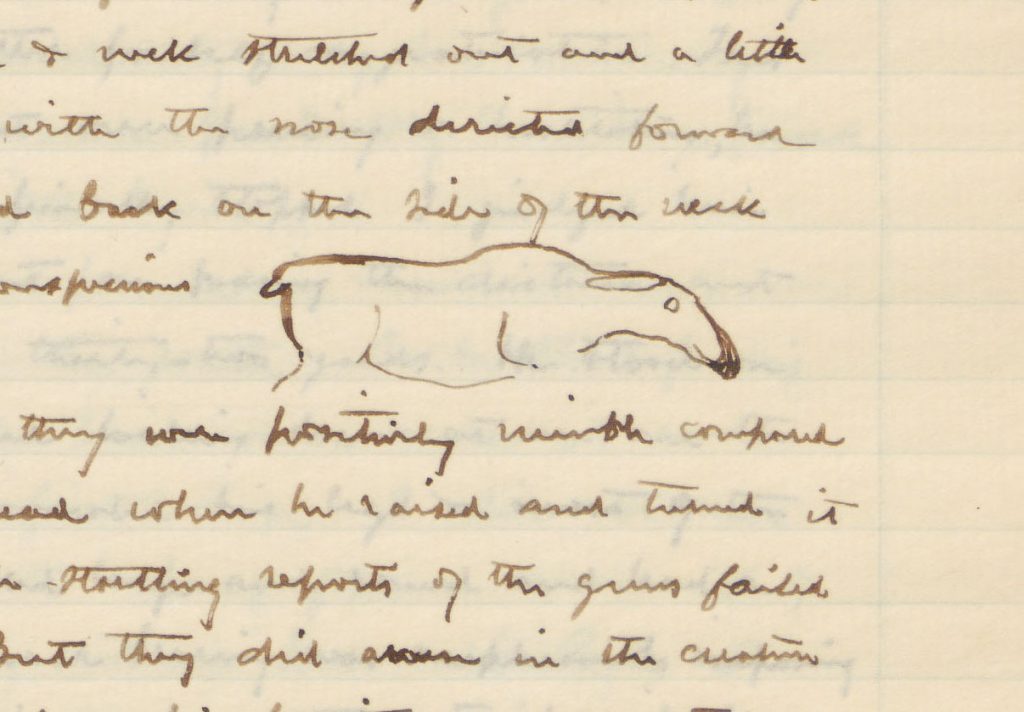 & neck stretched out and a little
with the nose directed forward
back on the side of the neck
they were positively nimble compared
when he raised and turned it
startling reports of the guns failed
But they did arouse in the creature